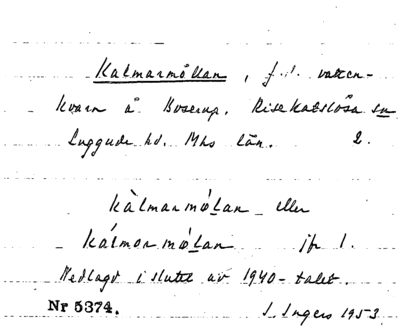 Kalmarmöllan, f.d. vatten-
kvarn å Boserup. Risekatslösa sn
Luggude hd. Mhs län. 2.
kàlmarmǿlan eller
kálmarmǿlan jfr 1.
Nedlagd i slutet av 1940-talet.
Nr 5374. I. Ingers 1953